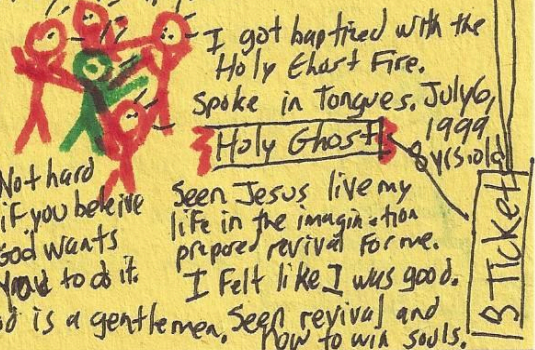 I got baptized with the
Holy Ghost Fire.
Spoke in Tongues. July 6,
1999
8 yrs old
Holy Ghost
B Ticket
Not hard
if you beleive
God wants
to do it.
Seen Jesus live my
life in the imagination
prepared revival for me.
I felt like I was good.
is a gentlemen. Seen revival and
how to win souls.